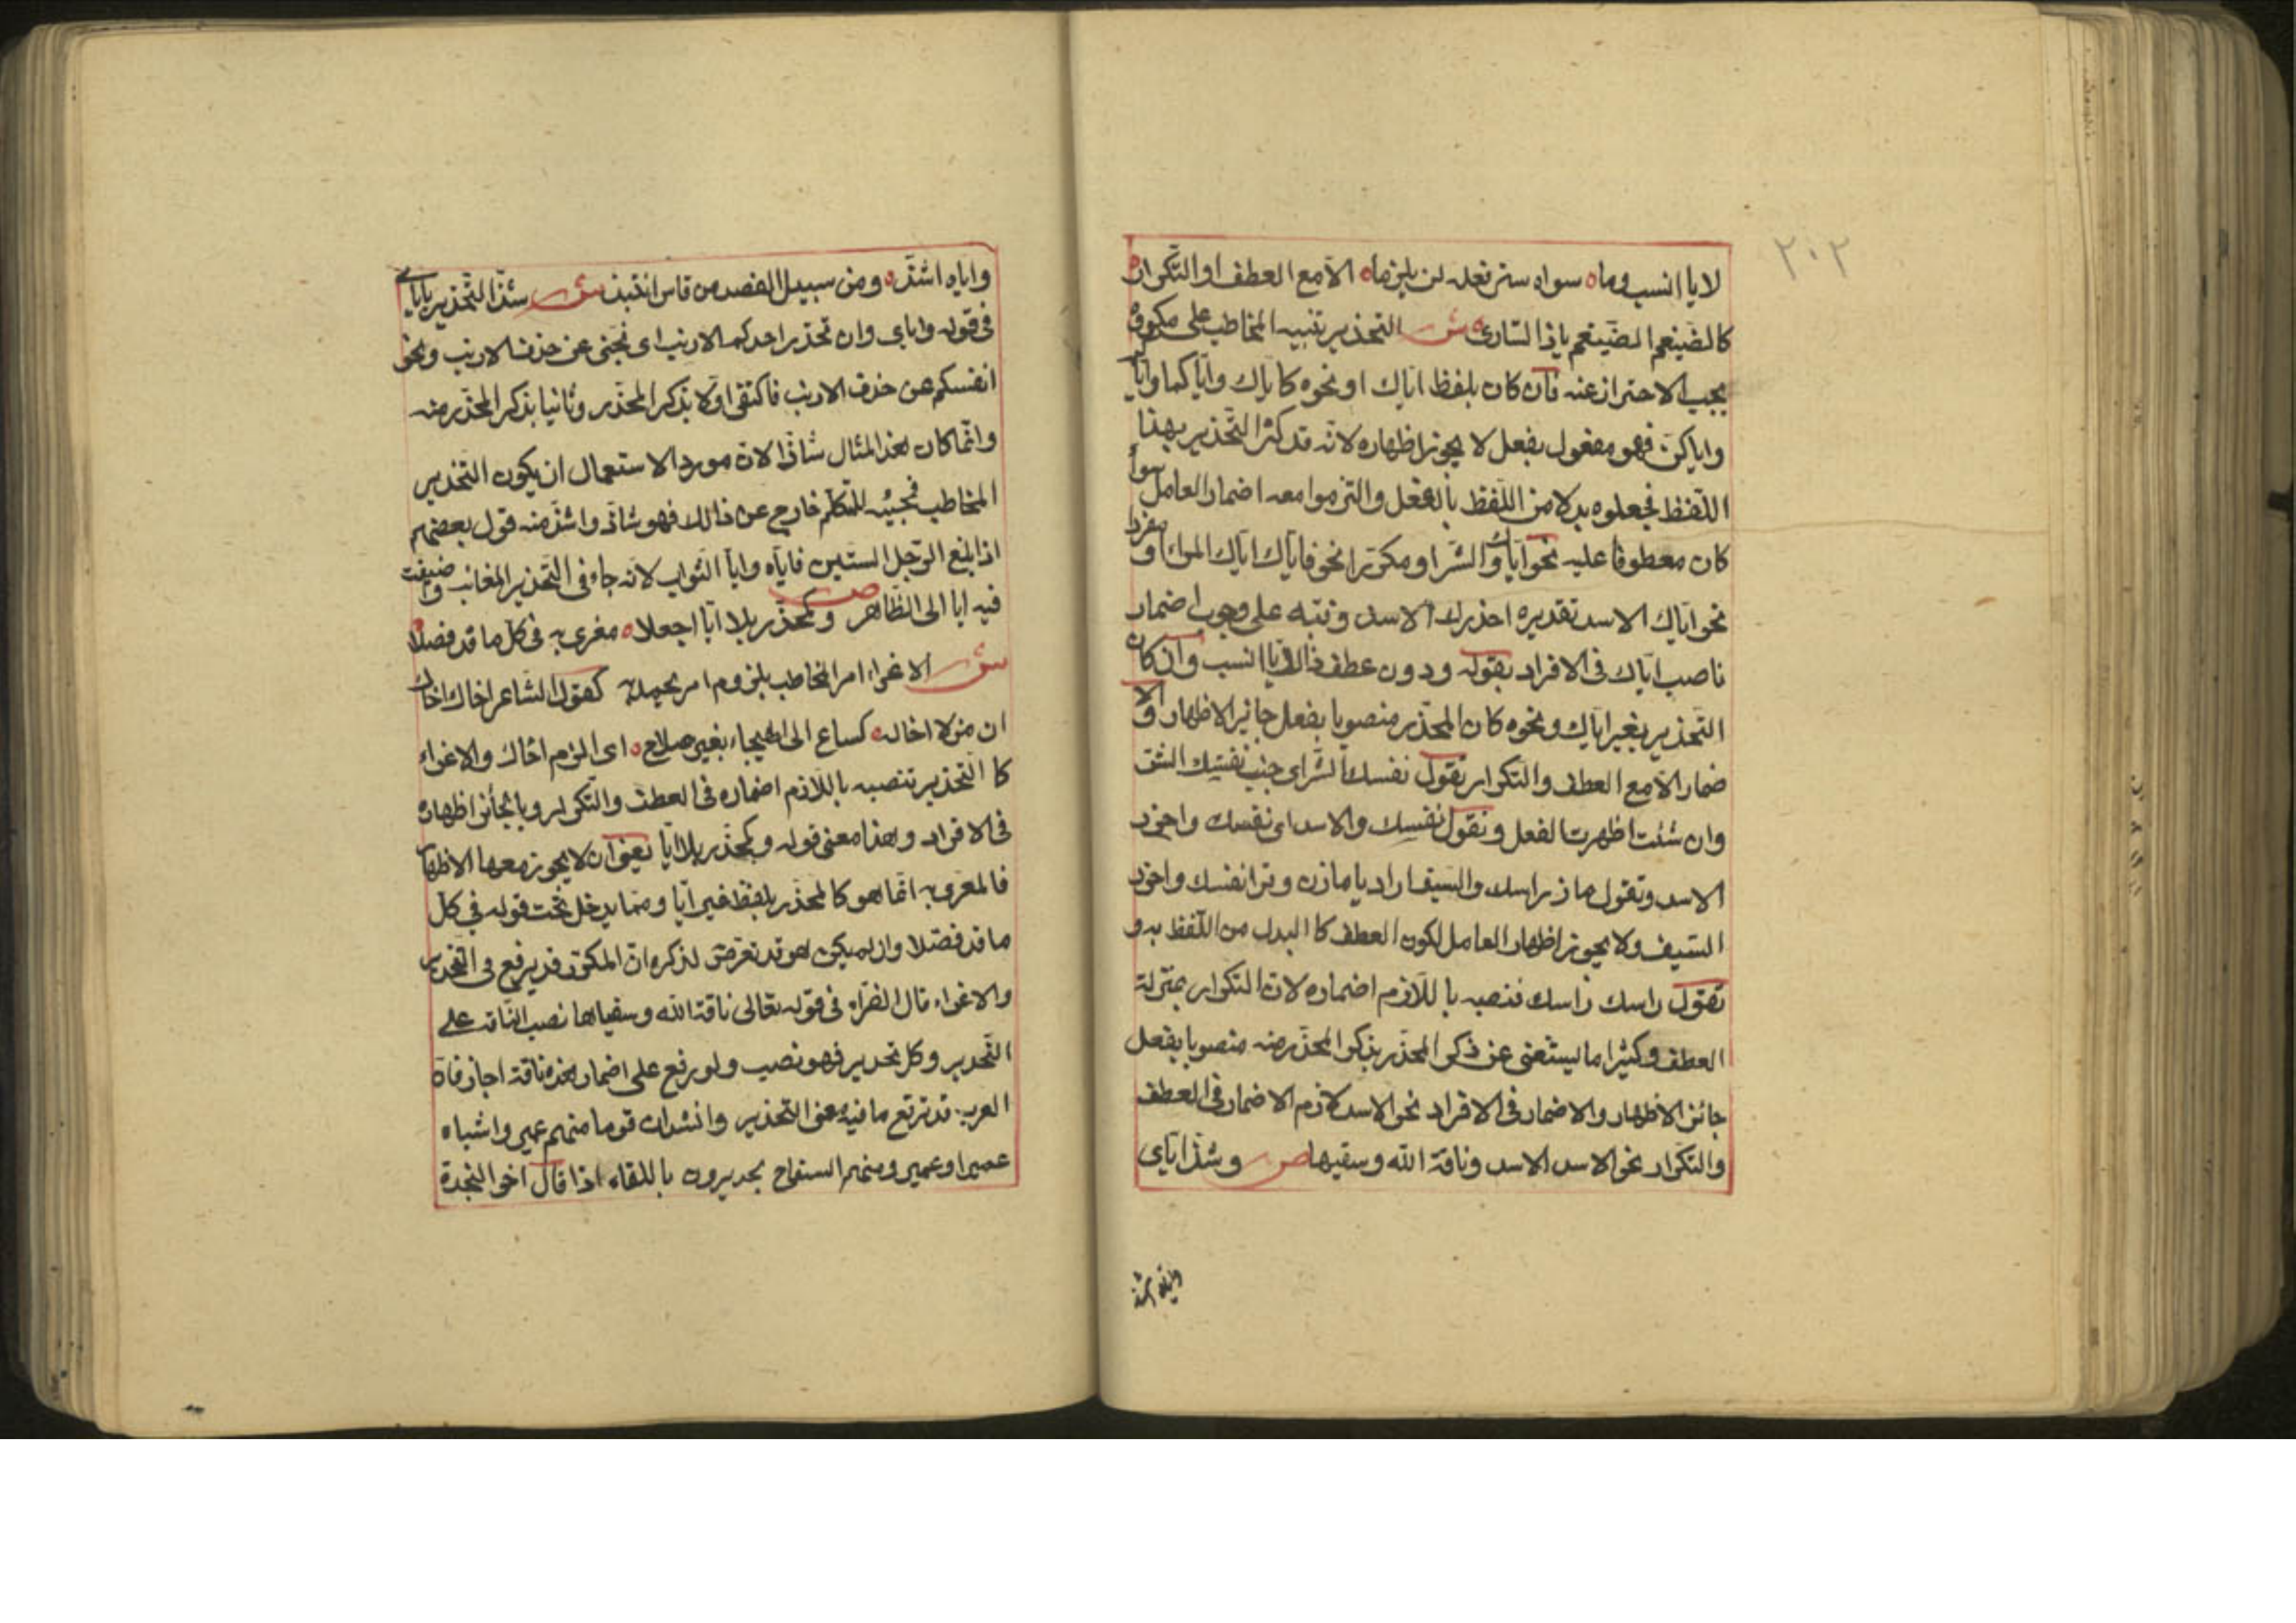 ٢٠٢
لا يا انسب وما ه سواه ستر فعله لن يلزما ه الا مع العطف او التكرار ه
كالضيغم الضيغم ياذا الساري ه ش التحذير تنبيه المخاطب على مكروه
يجب الاحتراز عنه فان كان بلفظ اياك او نحوه كاياك واياكما واياكم
واياكن فهو مفعول بفعل لا يجوز اظهاره لانه قد كثر التحذير بهذا
اللفظ فجعلوه بدلا من اللفظ بالفعل والتزموا معه اضمار العامل سواء
كان معطوفا عليه نحو اياك والشر او مكررا نحو فاياك اياك المراء او مفردا
نحو اياك الاسد تقديره احذرك الاسد ونبه على وجوب اضمار
ناصب اياك في الافراد بقوله ودون عطف ذا لايا انسب وان كان
التحذير بغير اياك ونحوه كان المحذر منصوبا بفعل جايز الاظهار والا
ضمار الا مع العطف والتكرار تقول نفسك الشر اي جنب نفسك الشر
وان شئت اظهرت الفعل وتقول نفسك والاسد اي نفسك واحذر
الاسد وتقول ماز راسك والسيف اراد يا مازن وق نفسك واحذر
السيف ولا يجوز اظهار العامل لكون العطف كالبدل من اللفظ به و
تقول راسك راسك فنصبه باللازم اضماره لان التكرار بمنزلة
العطف وكثيرا ما يستغنى عن ذكر المحذر بذكر المحذر منه منصوبا بفعل
جائز الاظهار والاضمار في الافراد نحو الاسد لازم الاضمار في العطف
والتكرار نحو الاسد الاسد وناقة الله وسقيها ص وشذ اياي
واياه اشذ
واياه اشذ ه ومن سبيل القصد من قاس انتبذ ش شذ التحذير باياي
في قوله واياي وان تحذر احدكم الارنب اي نحني عن حذف الارنب ونحو
انفسكم عن حذف الارنب فاكتفى اولا بذكر المحذر وثانيا بذكر المحذر منه
وانما كان هذا المثال شاذا لان مورد الاستعمال ان يكون التحذير
المخاطب فمجيئه للمتكلم خارج عن ذلك فهو شاذ واشذ منه قول بعضهم
اذا بلغ الرجل الستين فاياه وايا الشواب لانه جاء في التحذير الغائب واضيفت
فيه ايا الى الظاهر ص وكمحذر بلا ايا اجعلا ه مغرى به في كل ما قد فصلا ه
ش الاغراء امر المخاطب بلزوم امر يحمد به كقول الشاعر اخاك اخاك
ان من لا اخا له ه كساع الى الهيجاء بغير سلاح ه اي الزم اخاك والاغراء
كا التحذير تنصبه باللازم اضماره في العطف والتكرار وبالجائز اظهاره
في الافراد وهذا معنى قوله وكمحذر بلا ايا يعني ان لا يجوز معها الاظهار
فالمغرى به انما هو كالمحذر بلفظ غير ايا ومما يدخل تحت قوله في كل
ما قد فصلا وان لم يكن هو قد تعرض لذكره ان المكرر قد يرفع في التحذير
والاغراء قال الفراء في قوله تعالى ناقة الله وسقياها نصب الناقة على
التحذير وكل تحذير فهو نصب ولو رفع على اضمار هذه ناقة اجاز فان
العرب قد ترفع ما فيه معنى التحذير وانشد ان قوما منهم عمير واشباه
عمير او عمير ومنهم السفاح بجديرون باللقاء اذا قال اخو النجدة